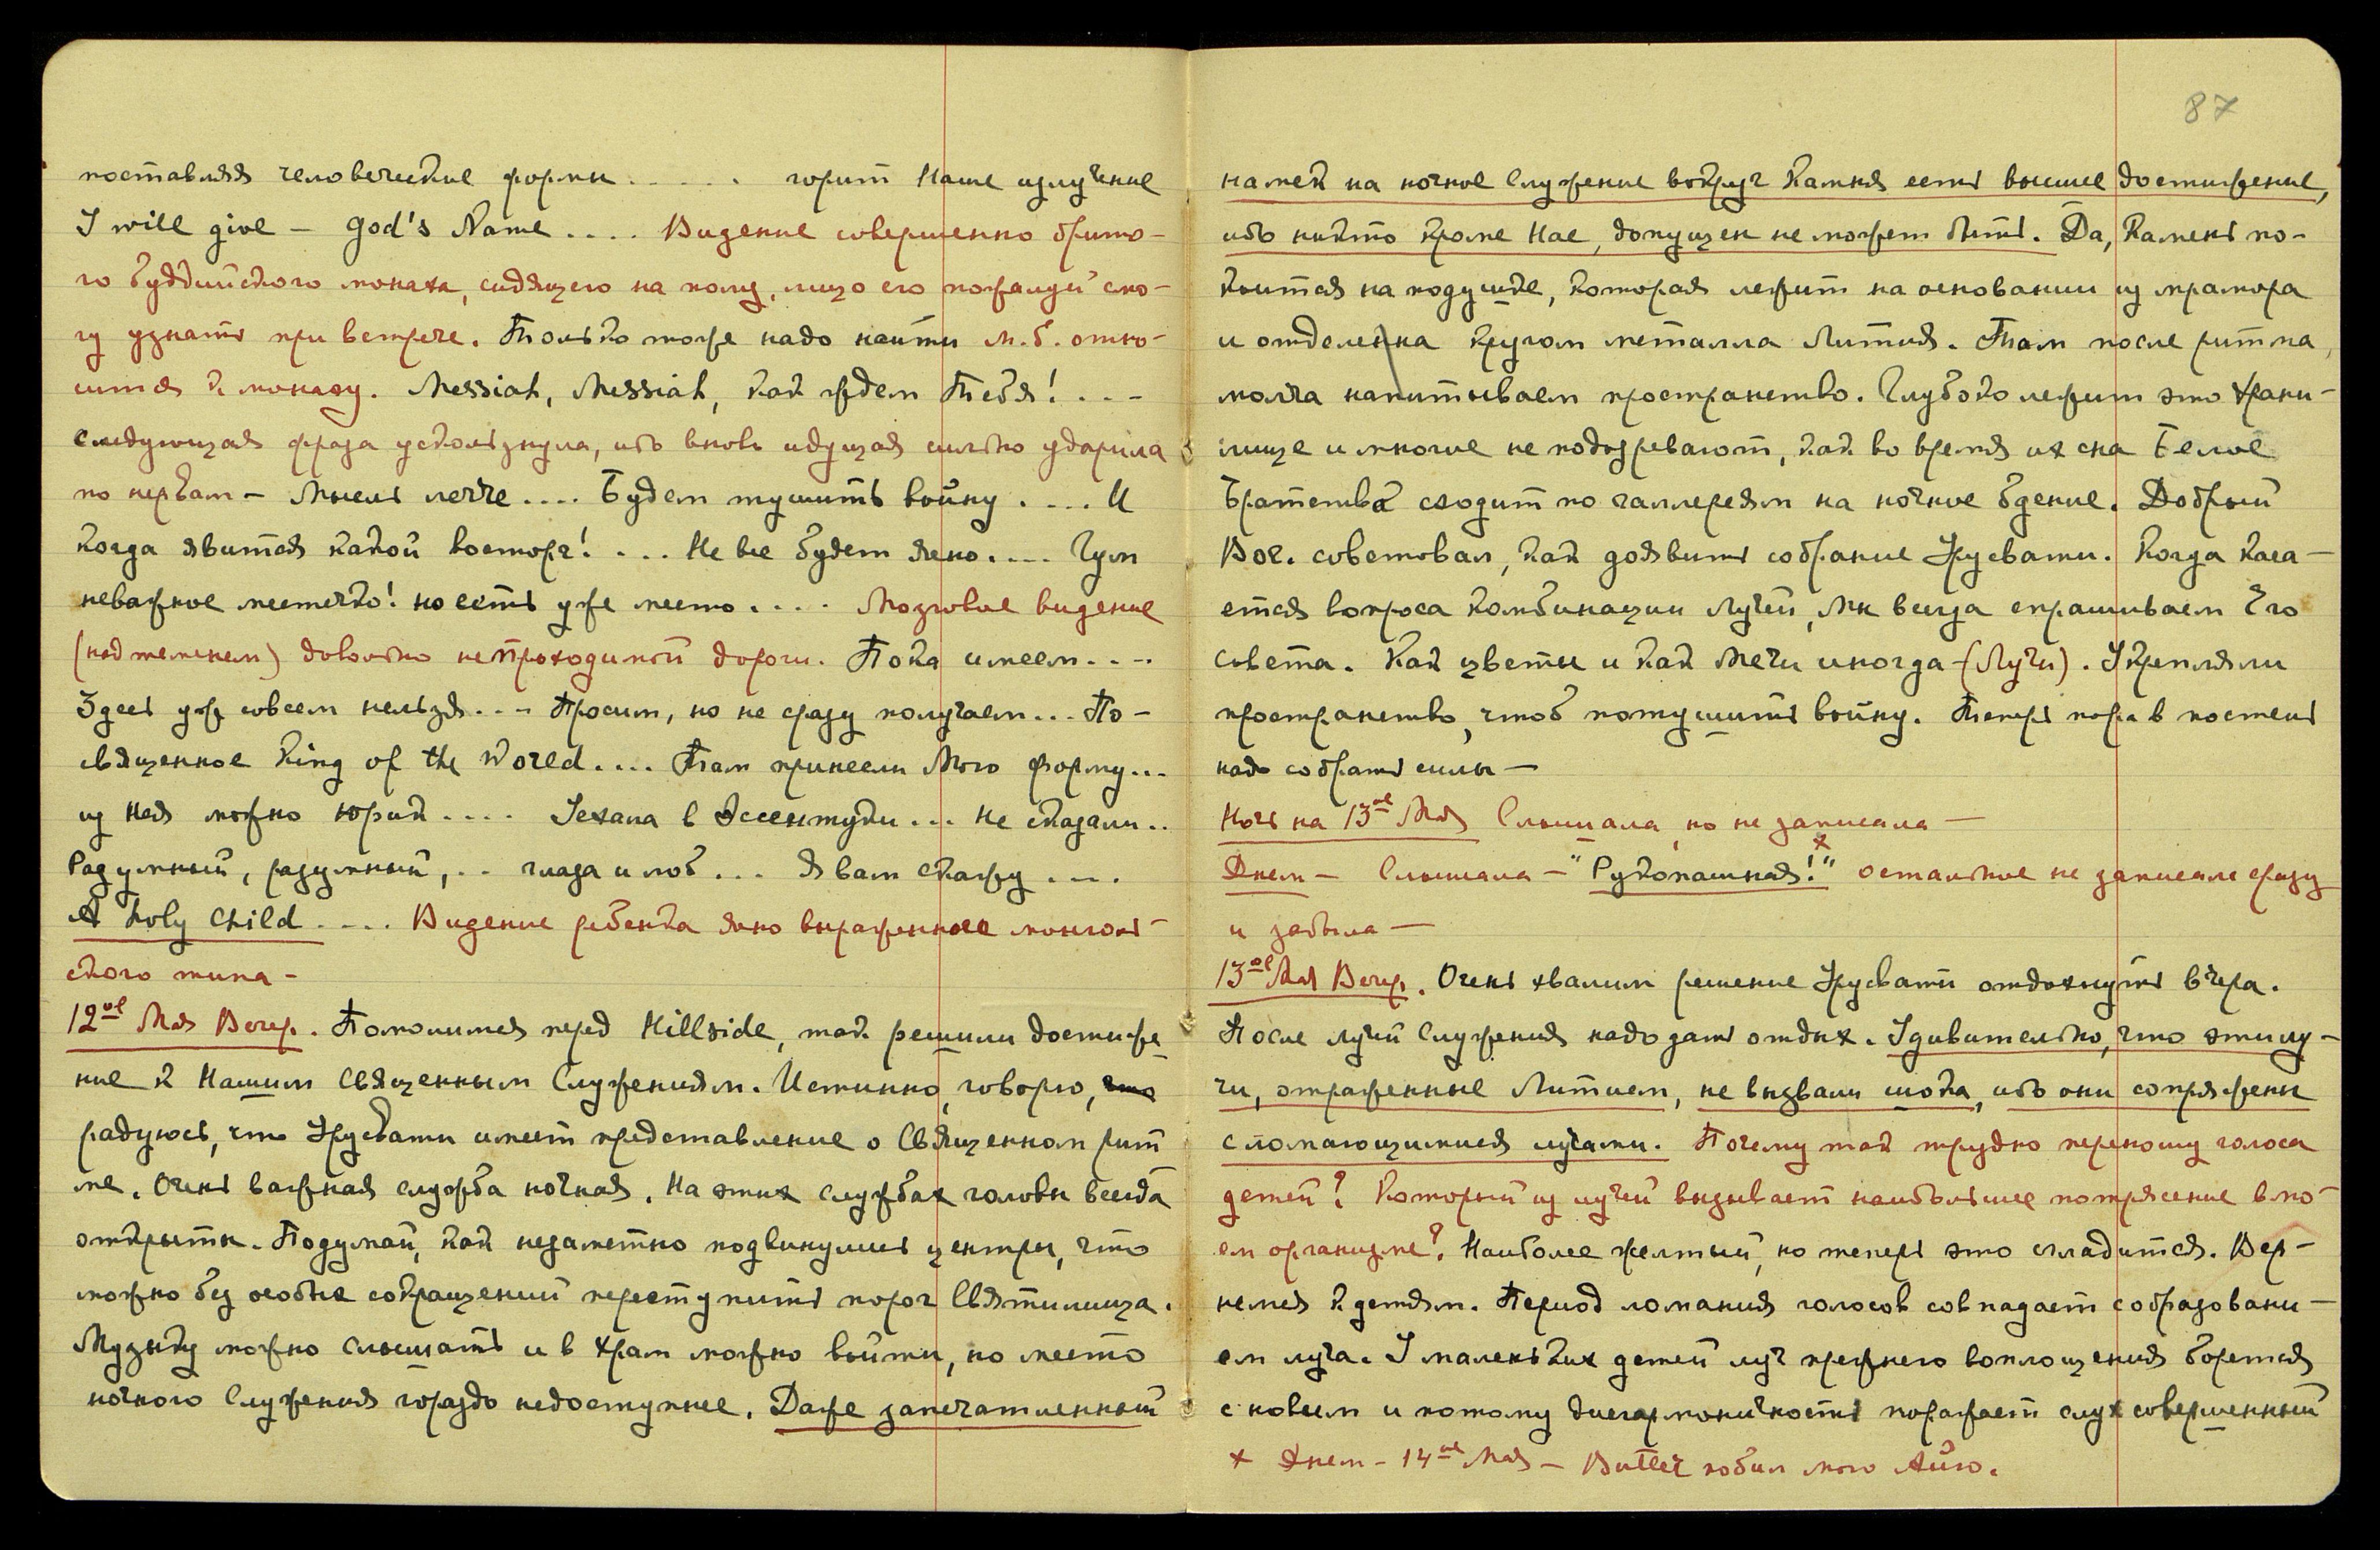 поставляя человеческие формы . . . . . . горит Наше излучение
I will give – god's Name . . . . Видение совершенно брито-
го буддийского монаха, сидящего на полу, лицо его пожалуй смо-
гу узнать при встрече. Только тоже надо найти м.б. отно-
сится к монаху. Messiah, Messiah, как ждем Тебя! . . .
Следующая фраза ускользнула, ибо вновь идущая сильно ударила
по нервам – Мысль легче . . . . Будем тушить войну . . . . И
когда явится какой восторг! . . . Не все будет ясно . . . . Гум
неважное местечко! но есть уже место . . . . Мозговое видение
(над теменем) довольно непроходимой дороги. Пока имеем . . . .
Здесь уж совсем нельзя . . . Просит, но не сразу получаем . . . По-
священное King of the World . . . . Там принесли Мою форму . . .
из нея можно Юрик . . . . Уехала в Эссентуки . . . Не сказали . .
Разумный, разумный, . . глаза и лоб . . . Я вам скажу . . . .
A holy Child . . . . Видение ребенка ясно выраженного монголь-
ского типа –
12ое Мая Вечер. Помолимся перед Hillside, так решили достиже-
ние к Нашим Священным Служениям. Истинно, говорю, что
радуюсь, что Урусвати имеет представление о Священном рит
ме. Очень важная служба ночная. На этих службах головы всегда
открыты. Подумай, как незаметно подвинулись центры, что
можно без особых сокращений переступить порог Святилища.
Музыку можно слышать и в храм можно войти, но место
ночного Служения гораздо недоступнее. Даже запечатленный
87
намек на ночное Служение вокруг Камня есть высшее достижение,
ибо никто кроме Нас, допущен не может быть. Да, Камень по-
коится на подушке, которая лежит на основании из мрамора
и отделена кругом металла Лития. Там после ритма,
молча напитываем пространство. Глубоко лежит это храни-
лище и многие не подозревают, как во время их сна Белое
Братство сходит по галлереям на ночное бдение. Добрый
Вог. советовал, как доявить собрание Урусвати. Когда каса-
ется вопроса комбинации Лучей, Мы всегда спрашиваем Его
совета. Как цветы и как Мечи иногда – (Лучи). Укрепляли
пространство, чтоб потушить войну. Теперь пора в постель
надо собрать силы –
Ночь на 13ое Мая Слышала, но не записала –
Днем – Слышала – "Рукопашная!" x остальное не записала сразу
и забыла –
13ое Мая Вечер. Очень хвалим решение Урусвати отдохнуть вчера.
После лучей Служения надо дать отдых. Удивительно, что эти лу-
чи, отраженные Литием, не вызвали шока, ибо они сопряжены
с ломающимися лучами. Почему так трудно переношу голоса
детей? Который из лучей вызывает наибольшее потрясение в мо-
ем организме? Наиболее желтый, но теперь это сгладится. Вер-
немся к детям. Период ломания голосов совпадает с образовани-
ем луча. У маленьких детей луч прежнего воплощения борется
с новым и потому дисгармоничность поражает слух совершенный
x Днем – 14ое Мая – Butler побил мою Айю.